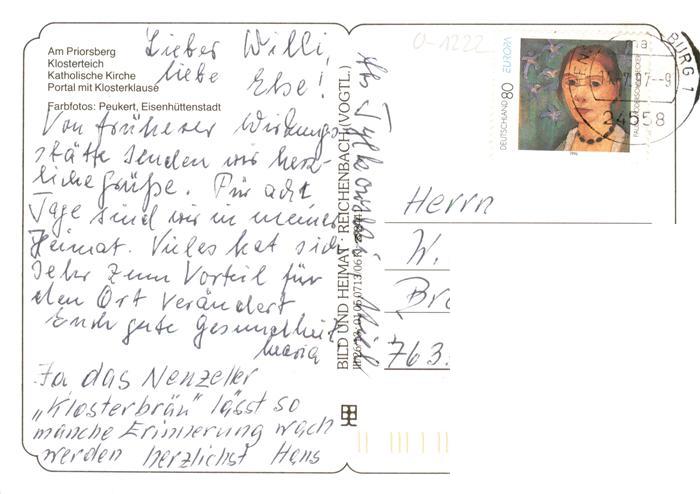 Am Priorsberg
Klosterteich
Katholische Kirche
Portal mit Klosterklause
Farbfotos: Peukert, Eisenhüttenstadt
Lieber Willi,
liebe Else!
Von früherer Wirkungs-
stätte senden wir herz-
liche Grüße. Für acht
Tage sind wir in meiner
Heimat. Vieles hat sich
sehr zum Vorteil für
den Ort verändert
Euch gute Gesundheit
Maria
Ja das Nenzeller
„Klosterbräu" lässt so
manche Erinnerung wach
werden herzlichst Hans
BILD UND HEIMAT · REICHENBACH (VOGTL.)
0-1222
DEUTSCHLAND 80 EUROPA
1996
BURG 1
-9
24558
Herrn
W.
Br
763